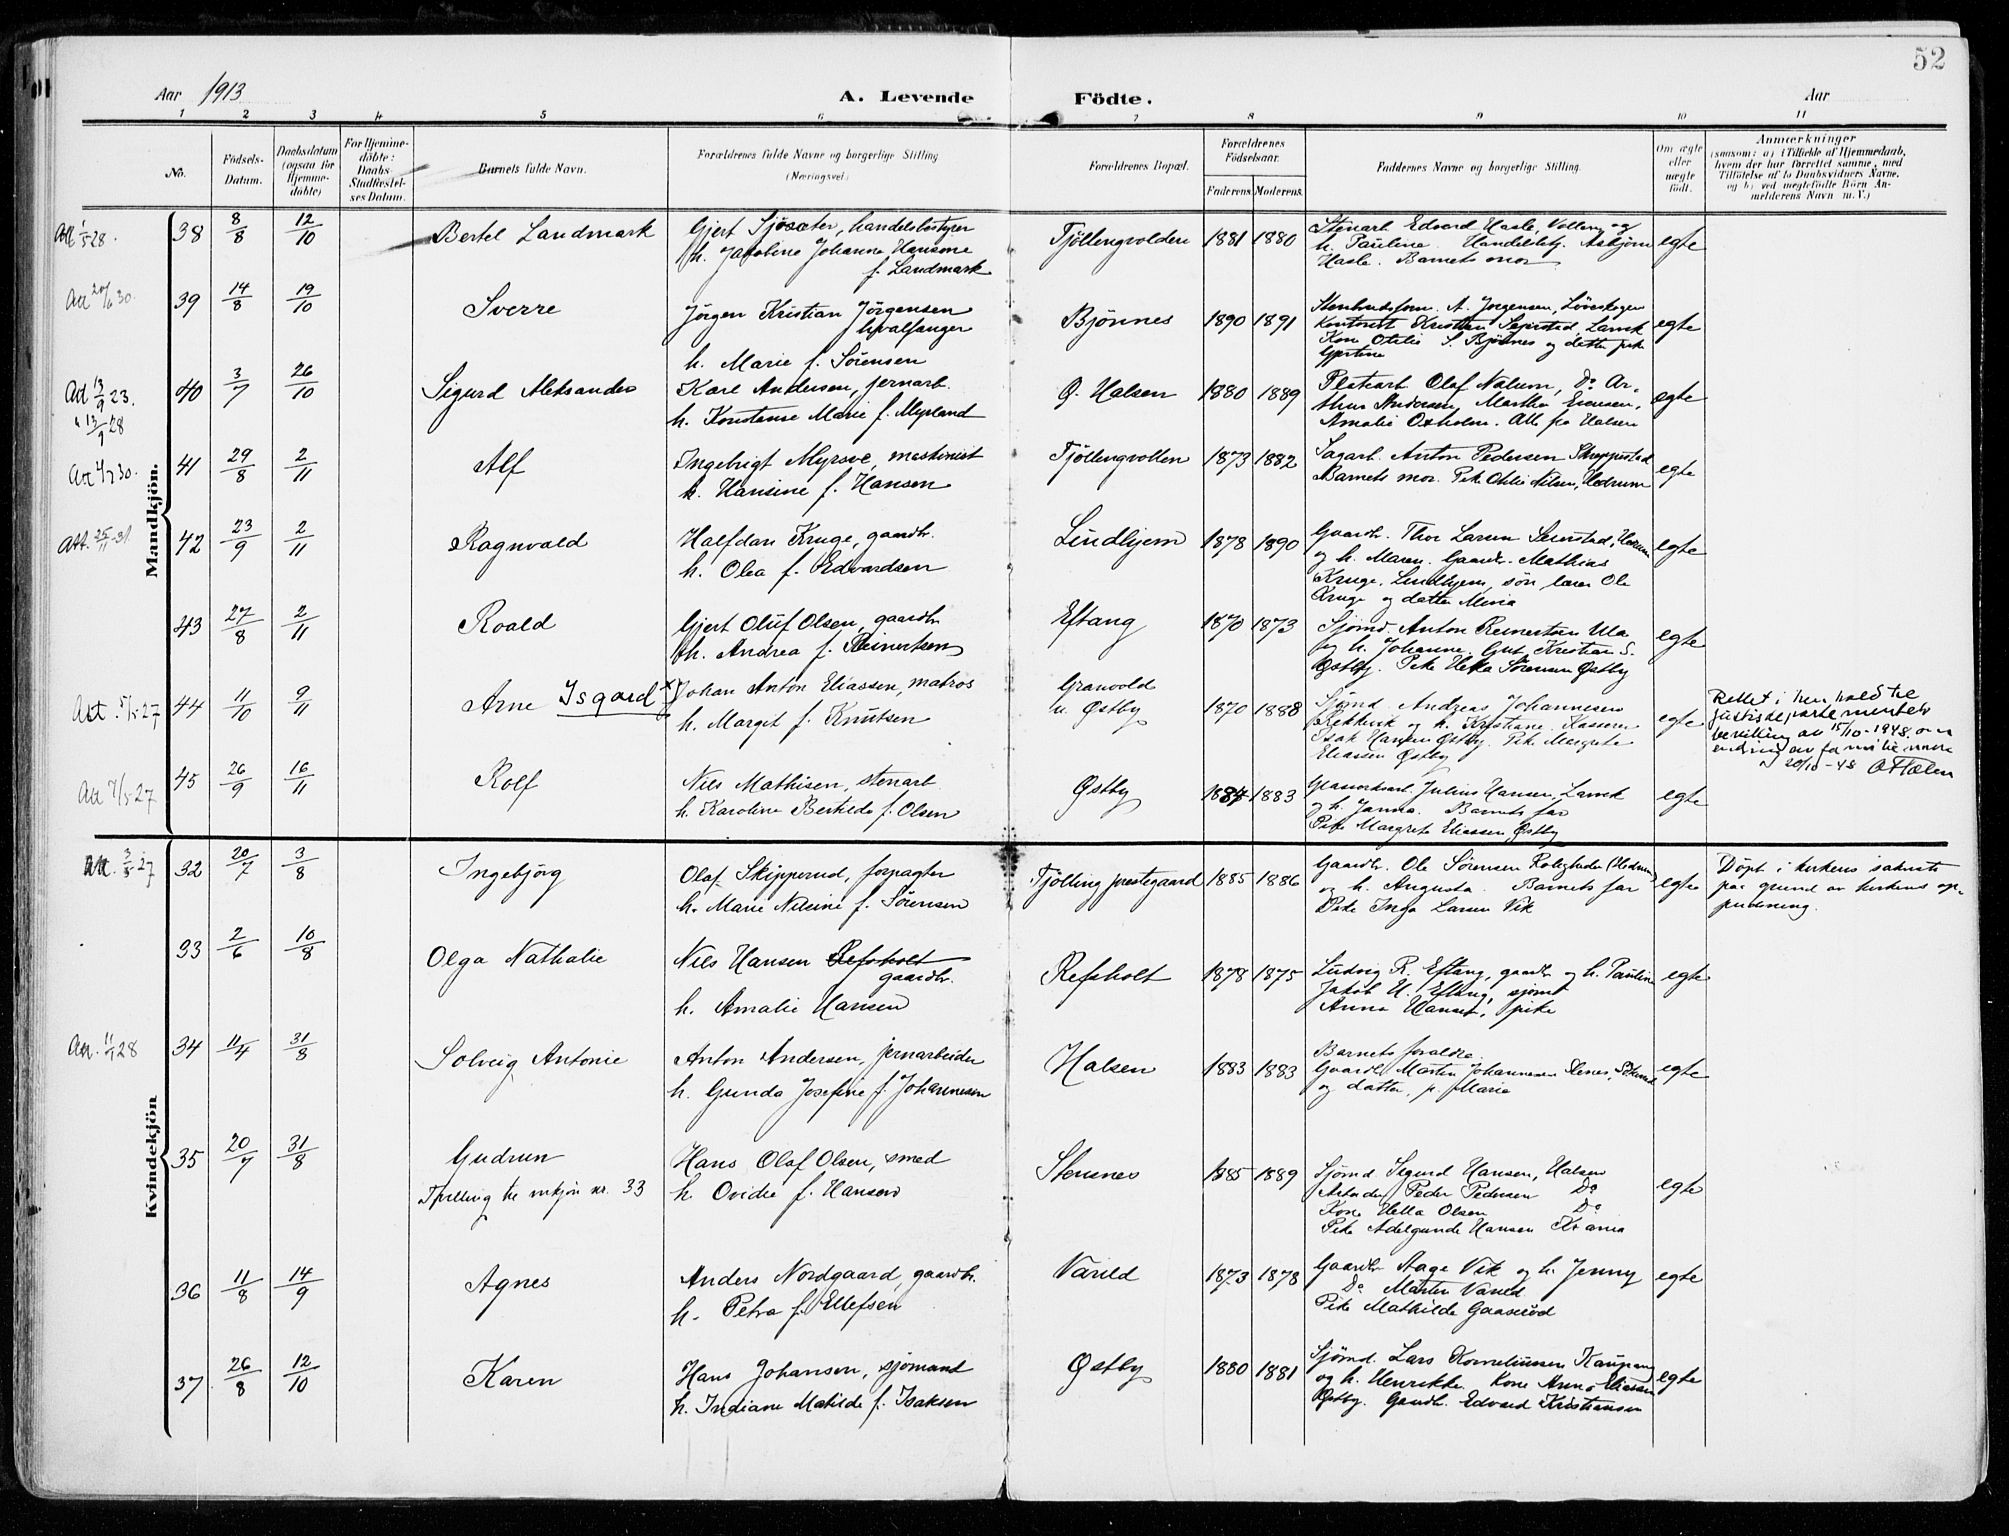 52
Aar 1913
A. Levende Födte.
Aar
1 2 3 4 5 6 7 8 9 10 11
No.
Födsels-
Datum.
Daabsdatum
(ogsaa for
Hjemme-
döbte)
For Hjemme-
döbte:
Daabs-
Stadfæstel-
ses Datum.
Barnets fulde Navn.
Forældrenes fulde Navne og borgerlige Stilling
(Næringsvei)
Forældrenes Bopæl.
Forældrenes
Födselsaar.
Faderens. Moderens.
Faddernes Navne og borgerlige Stilling.
Om ægte
eller
uægte
födt.
Anmærkninger
(saasom: a) i Tilfælde af Hjemmedaab,
hvem der har forrettet samme, med
Tilföielse af to Daabsvidners Navne,
og b) ved uægtefödte Börn An-
melderens Navn m. V.)
Mandkjön.
38 8/8 12/10 Bertel Landmark
Gjert Sjösæter, handelsbestyrer
h. Jacobine Johanne Hansine
f. Landmark
Tjöllingvolden 1881 1880
Stenarb. Edvard Hasle, Vollen og
h. Pauline. Handelsbtj. Asbjörn
Hasle. Barnets mor
egte
39 14/8 19/10 Sverre
Jörgen Kristian Jörgensen
hvalfanger
h. Marie f. Sörensen
Bjönnes 1890 1891
A. Jörgensen, Löveskogen
Kristian Larvik
Kone Otilie S. Bjönnes og datter pike
egte
Att 13/9 23.
" 13/9 28
40 3/7 26/10 Sigurd Aleksander
Karl Andersen, jernarb.
h. Konstanse Marie f. Myrland
Ö. Halsen 1880 1889
Platearb. Olaf Nalum, Do Ar-
thur Andersen, Martha
Amalie Oxholm. Alle fra Halsen
egte
41 29/8 2/11 Alf
Ingebrigt Myrsve, maskinist
h. Hansine f. Hansen
Tjöllingvollen 1873 1882
Sagarb. Anton Pedersen
Barnets mor. Pike Otilie Nilsen, Hedrum
egte
Att. 25/11-31
42 23/9 2/11 Ragnvald
Halfdan Kruge, gaardbr.
h. Olea f. Edvardsen
Lindhjem 1878 1890
Gaardbr. Thor Larsen Hedrum
og h. Maren. Gaardbr. Mathias
Kruge, Lindhjem, sön lærer Ole
Kruge og datter Maria
egte
43 27/8 2/11 Roald
Gjert Oluf Olsen, gaardbr
h. Andrea f. Reinertsen
Eftang 1870 1873
Sjömd. Anton Reinertsen Ula
og h. Johanne. Gut Kristian S.
Östby. Pike Helka Sörensen Östby
egte
Att. 5/5-27
44 11/10 9/11 Arne Isgaard x)
Johan Anton Eliassen, matros
h. Margit f. Knutsen
Granvold
u. Östby 1870 1888
Sjömd. Andreas Johannesen
og h. Kristiane
Isak Hansen Östby. Pike Margrete
Eliassen Östby
egte
Rettet i henhold til
justisdepartementets
bevilling av 15/10-1948 om
endring av familienavn
20/10-48
Att 7/5-27
45 26/9 16/11 Rolf
Nils Mathisen, stenarb.
h. Karoline Berthilde f. Olsen
Östby 1884 1883
Glasverksarb. Julius Hansen, Larvik
og h. Janna. Barnets far
Pike Margrete Eliassen, Östby
egte
Kvindekjön
32 20/7 3/8 Ingebjörg
Olaf Skipperud, forpagter
h. Marie Nilsine f. Sörensen
Tjölling prestegaard 1885 1886
Gaardbr. Ole Sörensen Roligheden (Hedrum)
og h. Augusta. Barnets far
Pike Inga Larsen Vik
egte
Döpt i kirkens sakristi
paa grund av kirkens op-
pudsning.
33 2/6 10/8 Olga Nathalie
Nils Hansen Refsholt
gaardbr.
h. Amalie Hansen
Refsholt 1878 1875
Ludvig R. Eftang, gaardbr og h. Pauline
Jakob H. Eftang, sjömd
Anna Hansen, pike
egte
34 11/4 31/8 Solveig Antonie
Anton Andersen, jernarbeider
h. Gunda Josefine f. Johannesen
Halsen 1883 1883
Barnets forældre
Gaardbr. Martin Johannesen
og datter, p. Maria
egte
35 20/7 31/8 Gudrun
Tvilling til mkjön nr. 33
Hans Olaf Olsen, smed
h. Ovidia f. Hansen
Stensnes 1885 1889
Sjömd. Sigurd Hansen, Halsen
Arbeider Peder Pedersen Do
Kone Hella Olsen Do
Pike Adelgunde Hansen Kr.ania
egte
36 11/8 14/9 Agnes
Anders Nordgaard, gaardbr.
h. Petra f. Ellefsen
Varild 1873 1878
Gaardbr Aage Vik og h. Jenny
Do Martin Varild
Pike Mathilde Gaaseröd
egte
37 26/8 12/10 Karen
Hans Johansen, sjömand
h. Indiane Matilde f. Isaksen
Östby 1880 1881
Sjömd. Lars Korneliussen Kaupang
og h. Henrikke. Kone Anna Eliassen
Östby. Gaardbr. Edvard Kristiansen
egte